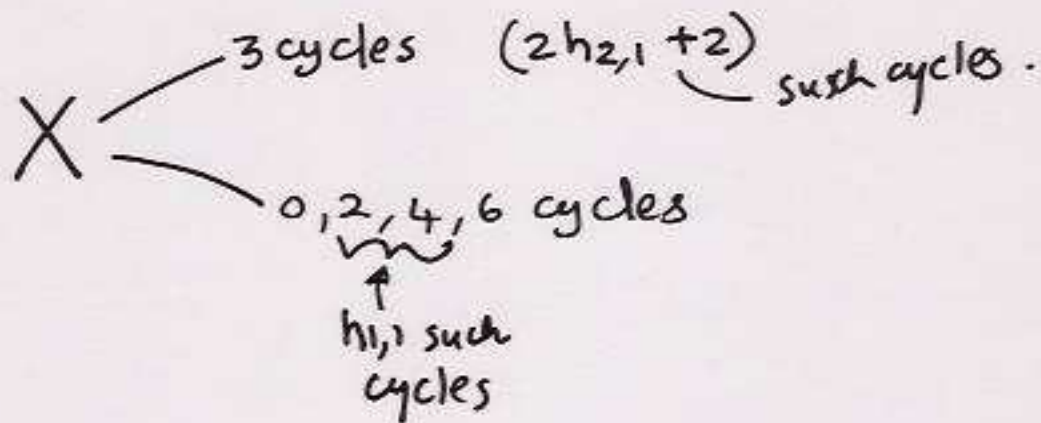 3 cycles (2h2,1 +2)
such cycles.
X
0, 2, 4, 6 cycles
h1,1 such
cycles